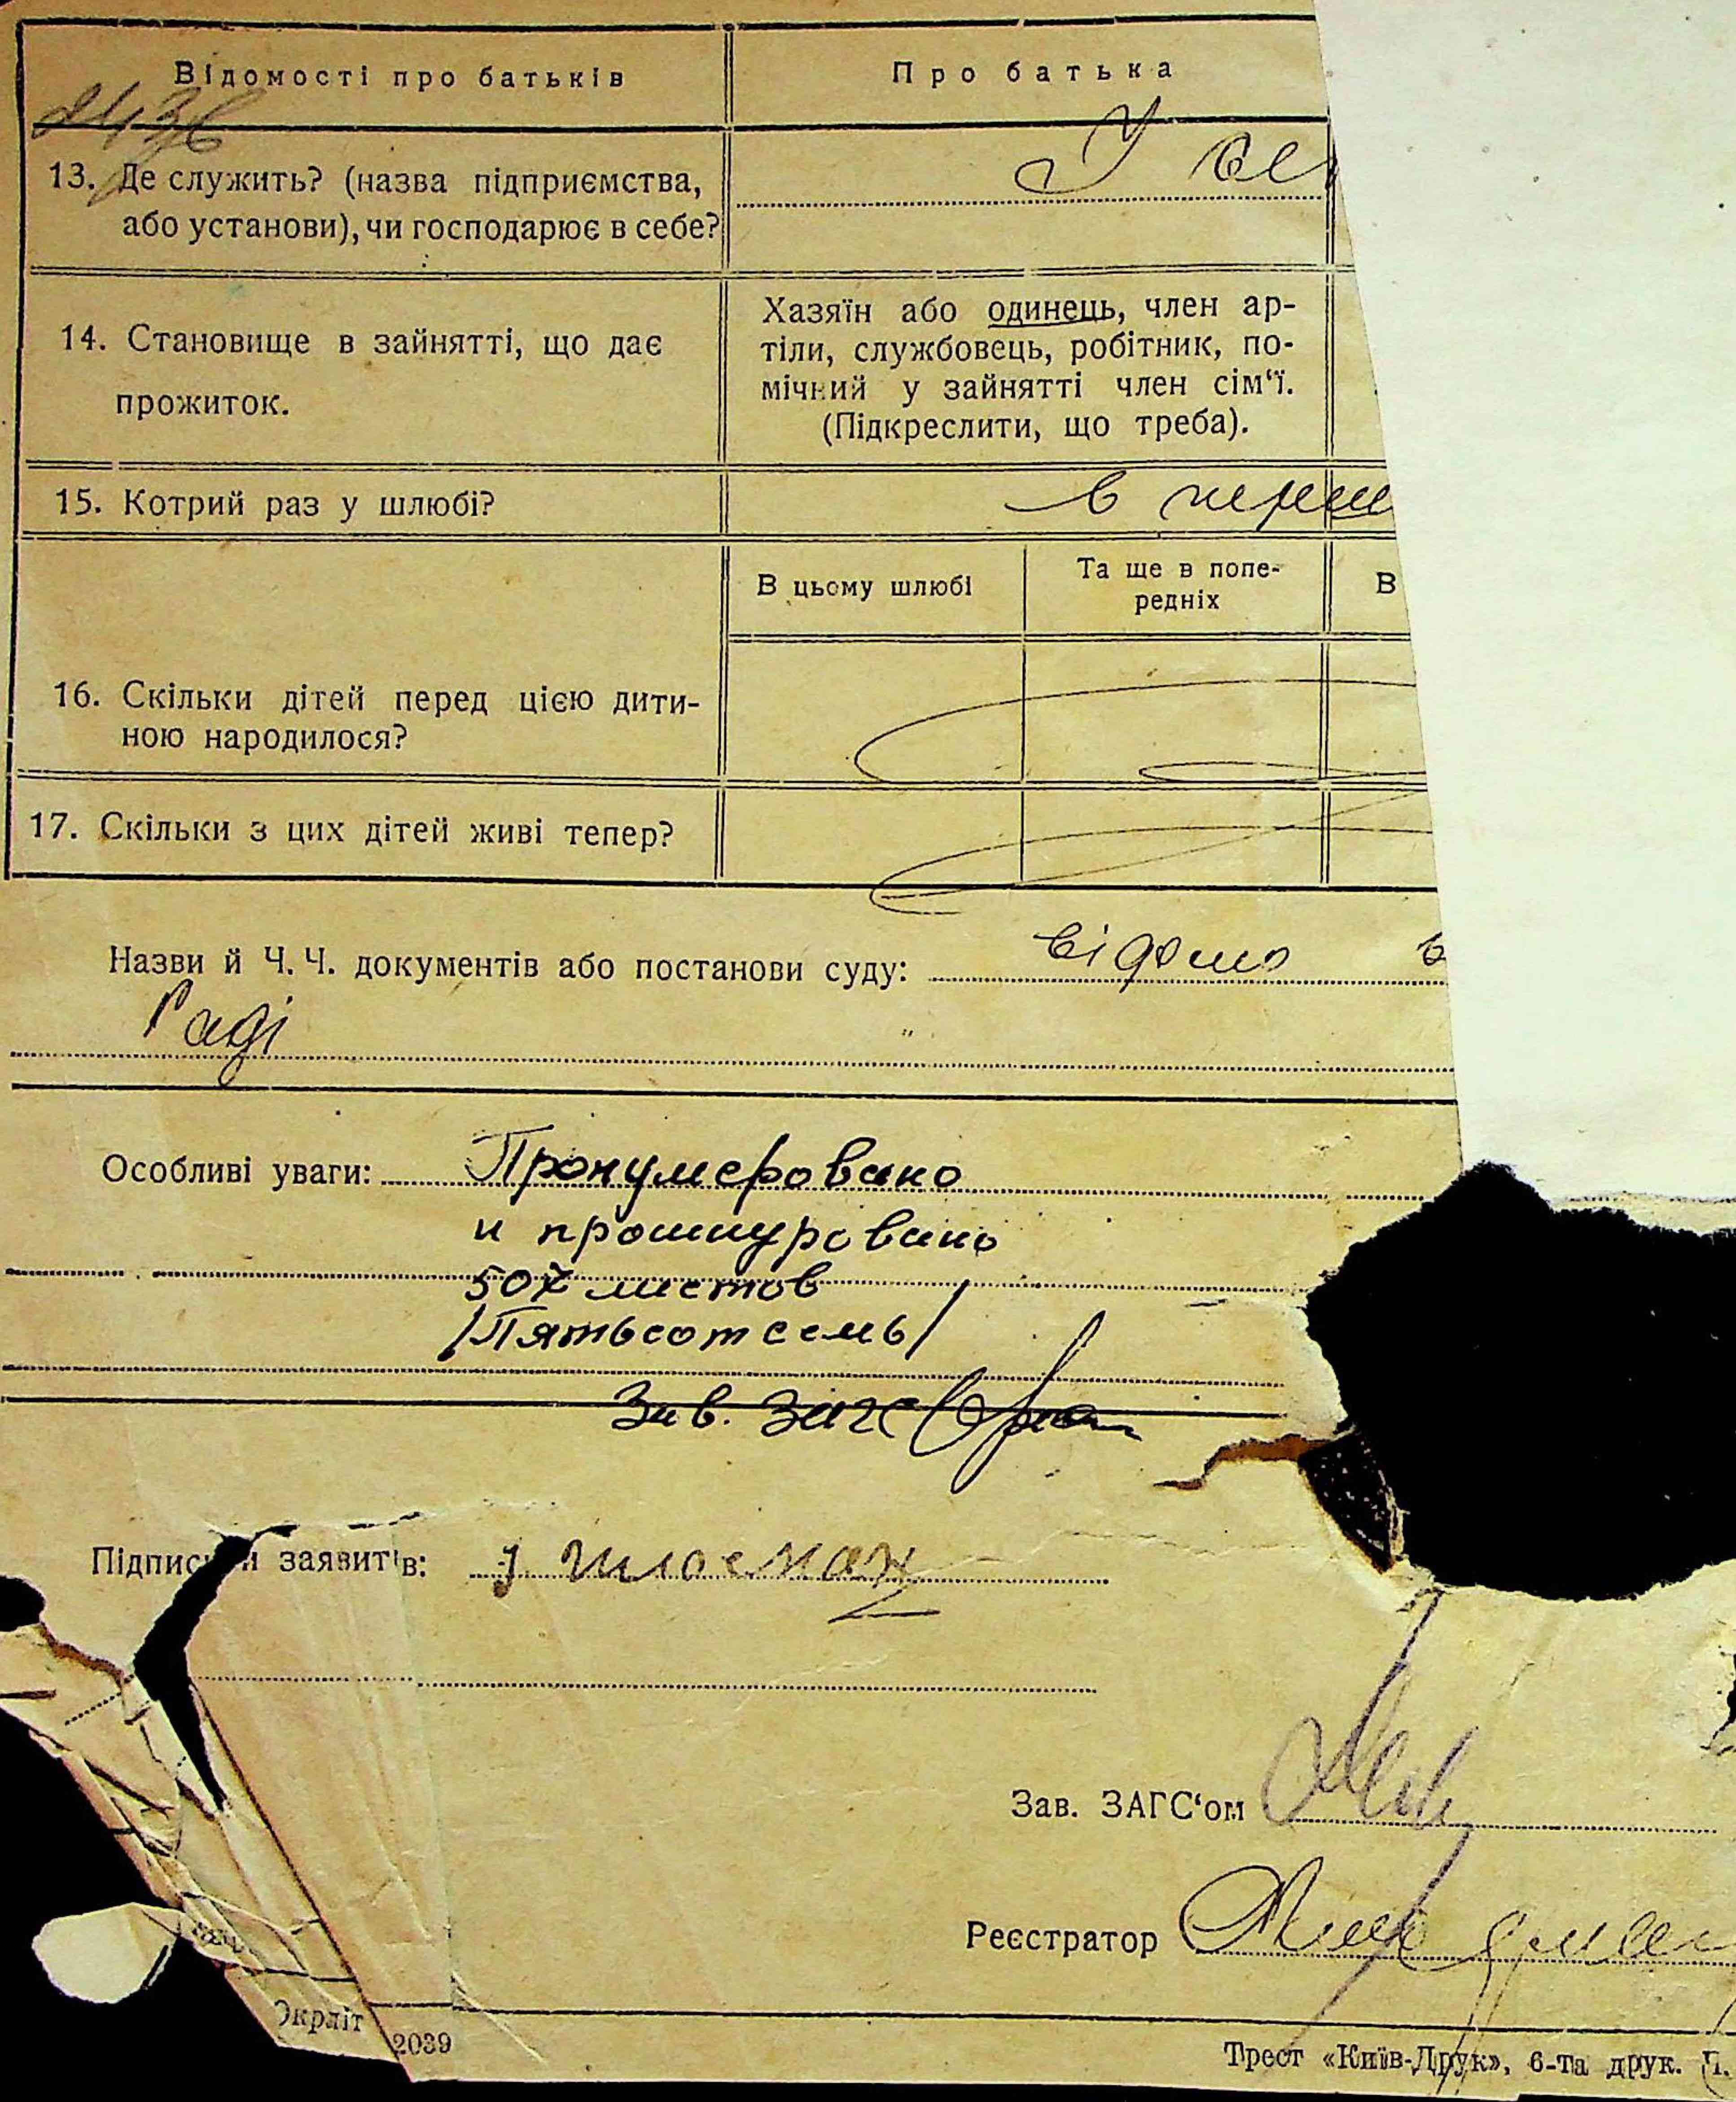 Відомості про батьків
Про батька
2436
13. Де служить? (назва підприємства,
або установи), чи господарює в себе?
У се
14. Становище в зайнятті, що дає
прожиток.
Хазяїн або одинець, член ар-
тіли, службовець, робітник, по-
мічний у зайнятті член сім‘ї.
(Підкреслити, що треба).
15. Котрий раз у шлюбі?
в перш
В цьому шлюбі
Та ще в попе-
редніх
В
16. Скільки дітей перед цією дити-
ною народилося?
17. Скільки з цих дітей живі тепер?
Назви й Ч. Ч. документів або постанови суду: відомо в
Раді
Особливі уваги: Пронумеровано
и прошнуровано
507 листов
/Пятьсот семь/
Зав. Загс
Підписи заявитів:
Зав. ЗАГС‘ом
Реєстратор
Окрліт 2039
Трест «Київ-Друк», 6-та друк.